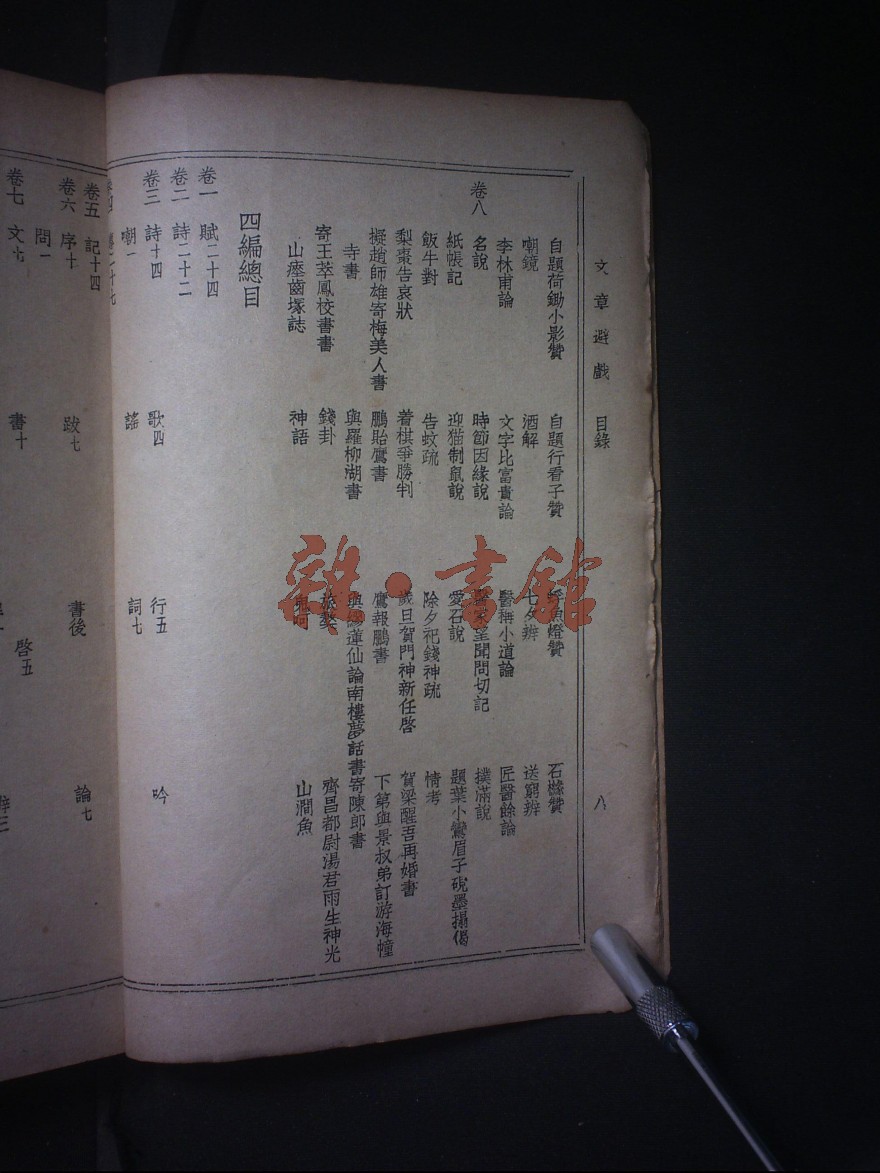 文章遊戲 目錄 八
卷八
自題荷鋤小影贊 自題行看子贊 魚燈贊 石贊
嘲鏡 酒解 七夕辨 送窮辨
李林甫論 文字比富貴論 醫稱小道論 匠醫餘論
名說 時節因緣說 醫家望聞問切記 撲滿說
紙帳記 迎猫制鼠說 愛石說 題葉小鸞眉子硯墨搨偈
飯牛對 告蚊疏 除夕祀錢神疏 情考
梨棗告哀狀 着棋爭勝判 歲旦賀門神新任啓 賀梁醒吾再婚書
擬趙師雄寄梅美人書 鵬貽鷹書 鷹報鵬書 下第與景叔弟訂游海幢
寺書 與羅柳湖書 與繆蓮仙論南樓夢話書 寄陳郎書
寄王萃鳳校書書 錢卦 旅獒 齊昌都尉湯君雨生神光
山瘞齒塚誌 神語 山澗魚
四編總目
卷一 賦二十四
卷二 詩二十二
卷三 詩十四 歌四 行五 吟
嘲一 謠 詞七
卷五 記十四
卷六 序十 跋七 書後 論七
問一 啓五
卷七 文 書十
雜·書館